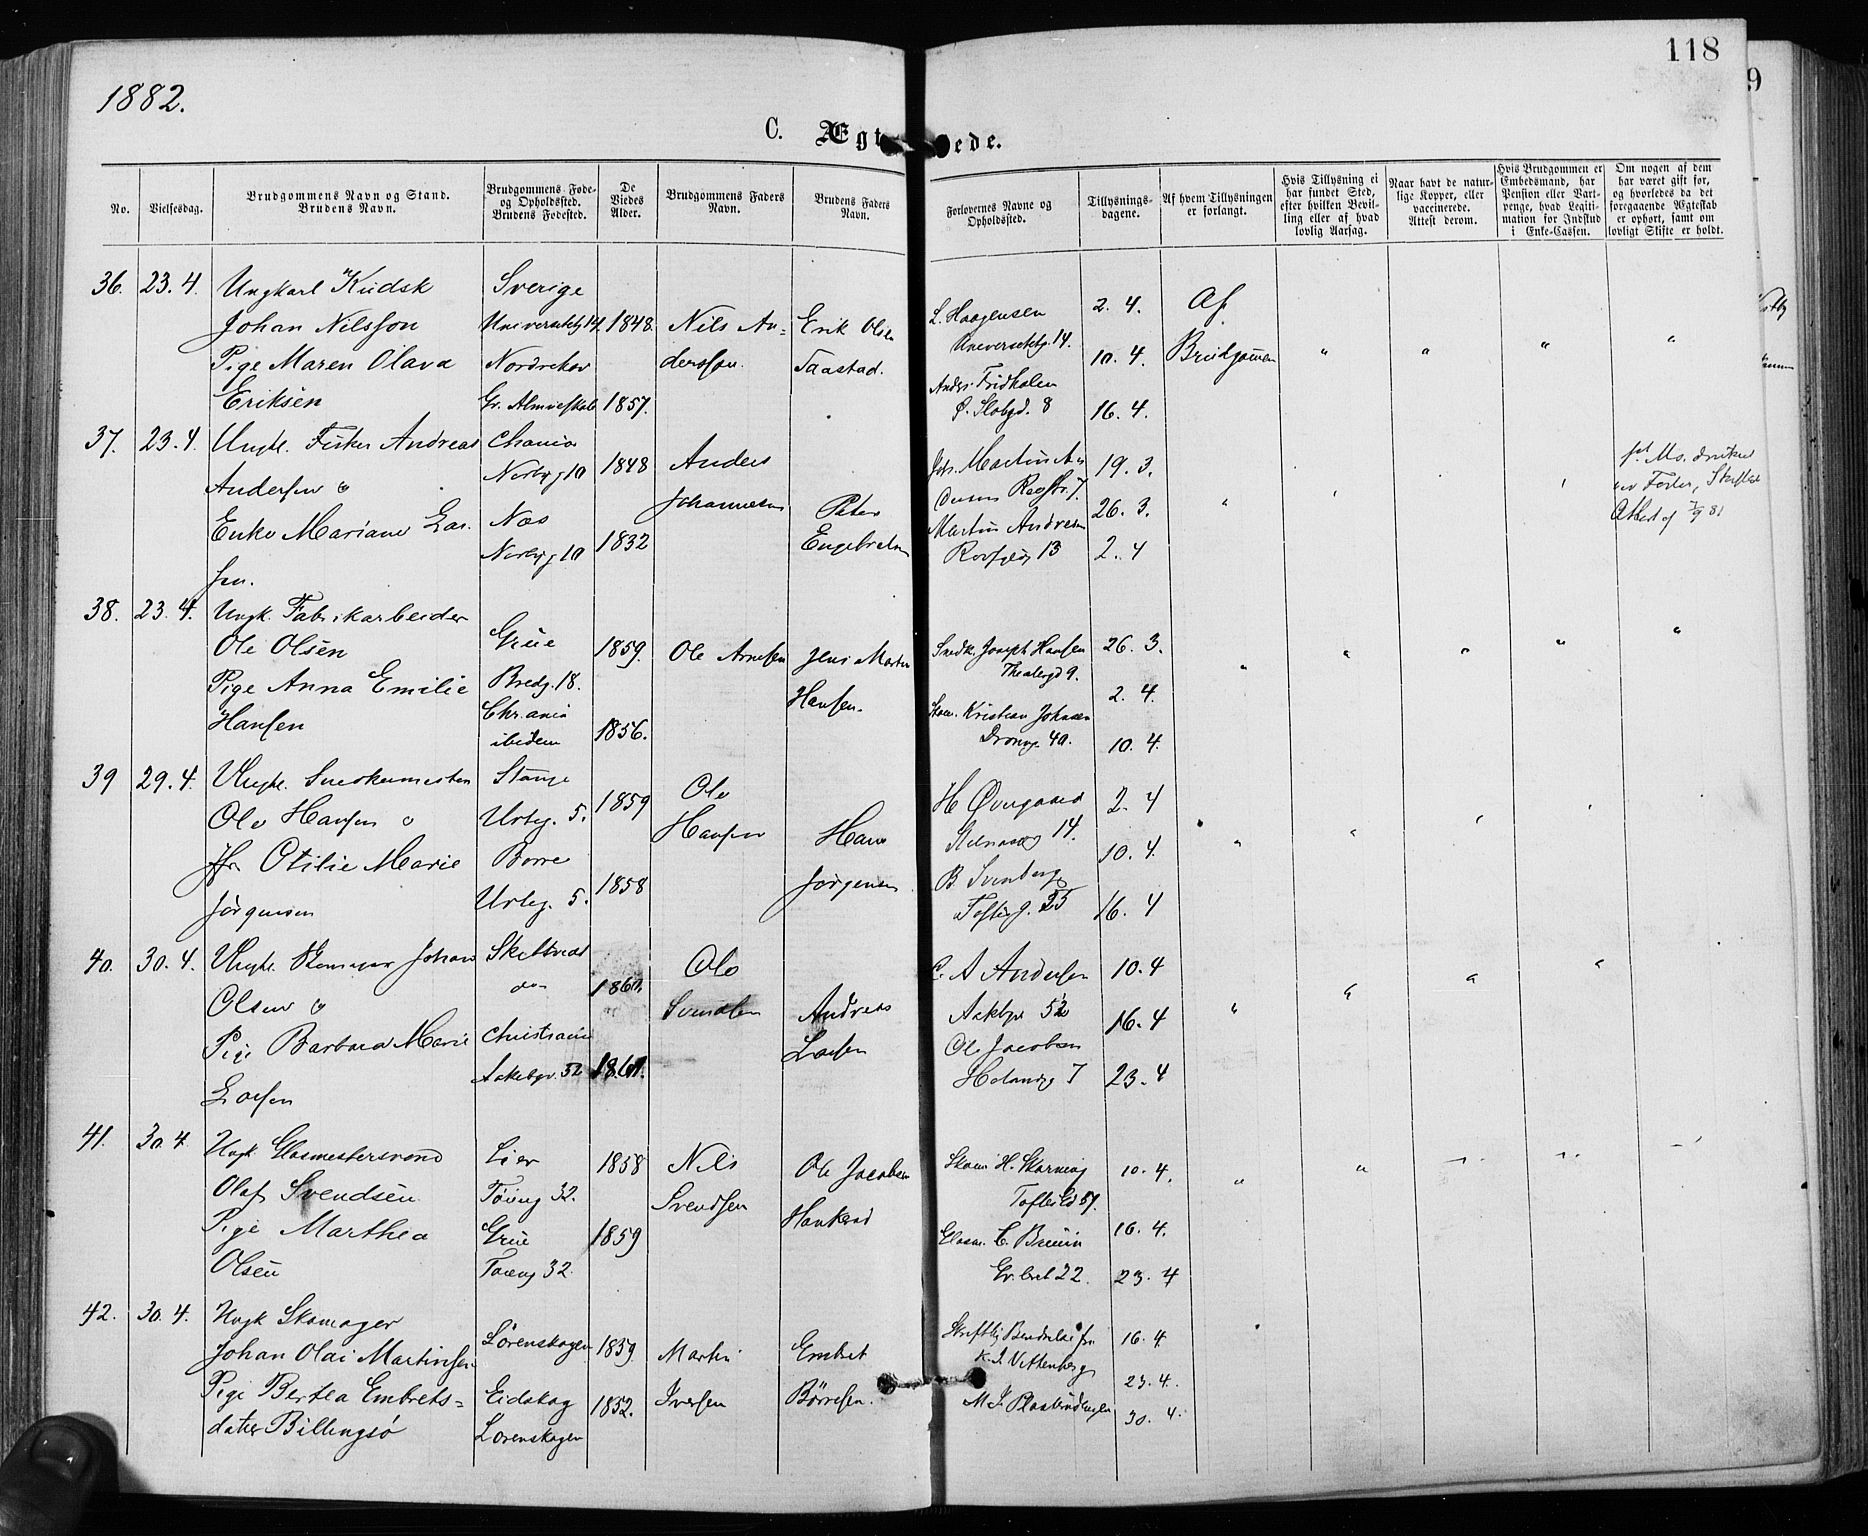 1882.
118
C. Ægt
ede.
No.
Vielsesdag.
Brudgommens Navn og Stand.
Brudens Navn.
Brudgommens Føde-
og Opholdssted.
Brudens Fødested.
De
Viedes
Alder.
Brudgommens Faders
Navn.
Brudens Faders
Navn.
Forlovernes Navne og
Opholdssted.
Tillysnings-
dagene.
Af hvem Tillysningen
er forlangt.
Hvis Tillysning ei
har fundet Sted,
efter hvilken Bevil-
ling eller af hvad
lovlig Aarsag.
Naar havt de natur-
lige Kopper, eller
vaccinerede.
Attest derom.
Hvis Brudgommen er
Embedsmand, har
Pension eller Vart-
penge, hvad Legiti-
mation for Indskud
i Enke-Cassen.
Om nogen af dem
har været gift før,
og hvorledes da det
foregaaende Ægteskab
er ophørt, samt om
lovligt Skifte er holdt.
36. 23. 4. Ungkarl Kudsk
Johan Nilsson
Pige Maren Olava
Eriksen
Sverige
Universitetsg 14
Nordrehov
1848.
1857.
Nils An=
dersson.
Erik Olsen
Taastad.
L. Haagensen
Universitetsg. 14.
Ø. Slotsgd. 8
2. 4.
10. 4
16. 4.
Af
Brudgommen
37. 23. 4 Ungk. Fisker Andreas
Andersen
Enke Mariane Lar-
sen.
Chania
Norbyg 10
Næs
Norbyg 10
1848
1832
Anders
Johannesen
Peter
Engebretsen
Martin Andresen
19. 3.
26. 3.
2. 4
38. 23. 4. Ungk. Fabrikarbeider
Ole Olsen
Pige Anna Emilie
Hansen
Grue
Bredg. 18.
Chr.ania
ibidem
1859.
1856.
Ole Arnesen
Jens Martin
Hansen.
Snedk. Joseph Hansen
Theatergd 9.
Skom. Kristian Johnsen
26. 3.
2. 4.
10. 4.
39 29. 4. Ungk. Snedkermester
Ole Hansen
Jfr Otilie Marie
Jørgensen
Stange
Urteg. 5.
Borre
Urteg. 5.
1859
1858
Ole
Hansen
Hans
Jørgensen
H Overgaard
B. Svenberg
2. 4
10. 4.
16. 4
40. 30. 4. Ungk. Skomager Johan
Olsen
Pige Barbara Marie
Larsen
Christiania
Aakebgv. 52
Ole
Svendsen
Andreas
Larsen
C. A Andersen
Aakbgv 52
Ole Jacobsen
10. 4
16. 4
23. 4
41. 30. 4. Ungk. Glasmestersvend
Olaf Svendsen
Pige Marthea
Olsen
Lier
Tøieng 32.
Grue
Tøieng 32.
1858
1859
Nils
Svendsen
Ole Jacobsen
10. 4.
16. 4.
23. 4
42. 30. 4. Ungk Skomager
Johan Olai Martinsen
Pige Bertea Embrets=
datter Billingsø
Lørenskogen
Eidskog
Lørenskogen
1859.
1852.
Martin
Iversen
Embret
Børresen.
K. J. Vittenberg
16. 4.
23. 4.
30. 4.